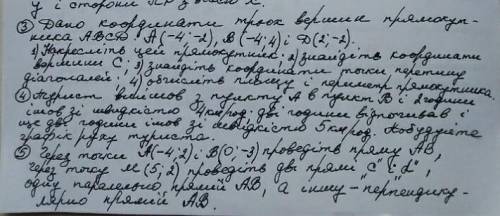 у і сторони
③ Дано координати трьох вершин прямокут-
ника ABCD: A(-4;-2), B(-4;4) і D(2;-2).
1) Накресліть цей прямокутник; 2) знайдіть координати
вершини C; 3) знайдіть координати точки перетину
діагоналей; 4) обчисліть площу і периметр прямокутника.
④ Турист вийшов з пункту A в пункт B і 2 години
ішов зі швидкістю 4 км/год, дві години відпочивав і
ще дві години ішов зі швидкістю 5 км/год. Побудуйте
графік руху туриста.
⑤ Через точки A(-4;2) і B(0;-3) проведіть пряму AB,
через точку M(5;2) проведіть дві прямі "C" і "d",
одну паралельно прямій AB, а іншу - перпендику-
лярно прямій AB.